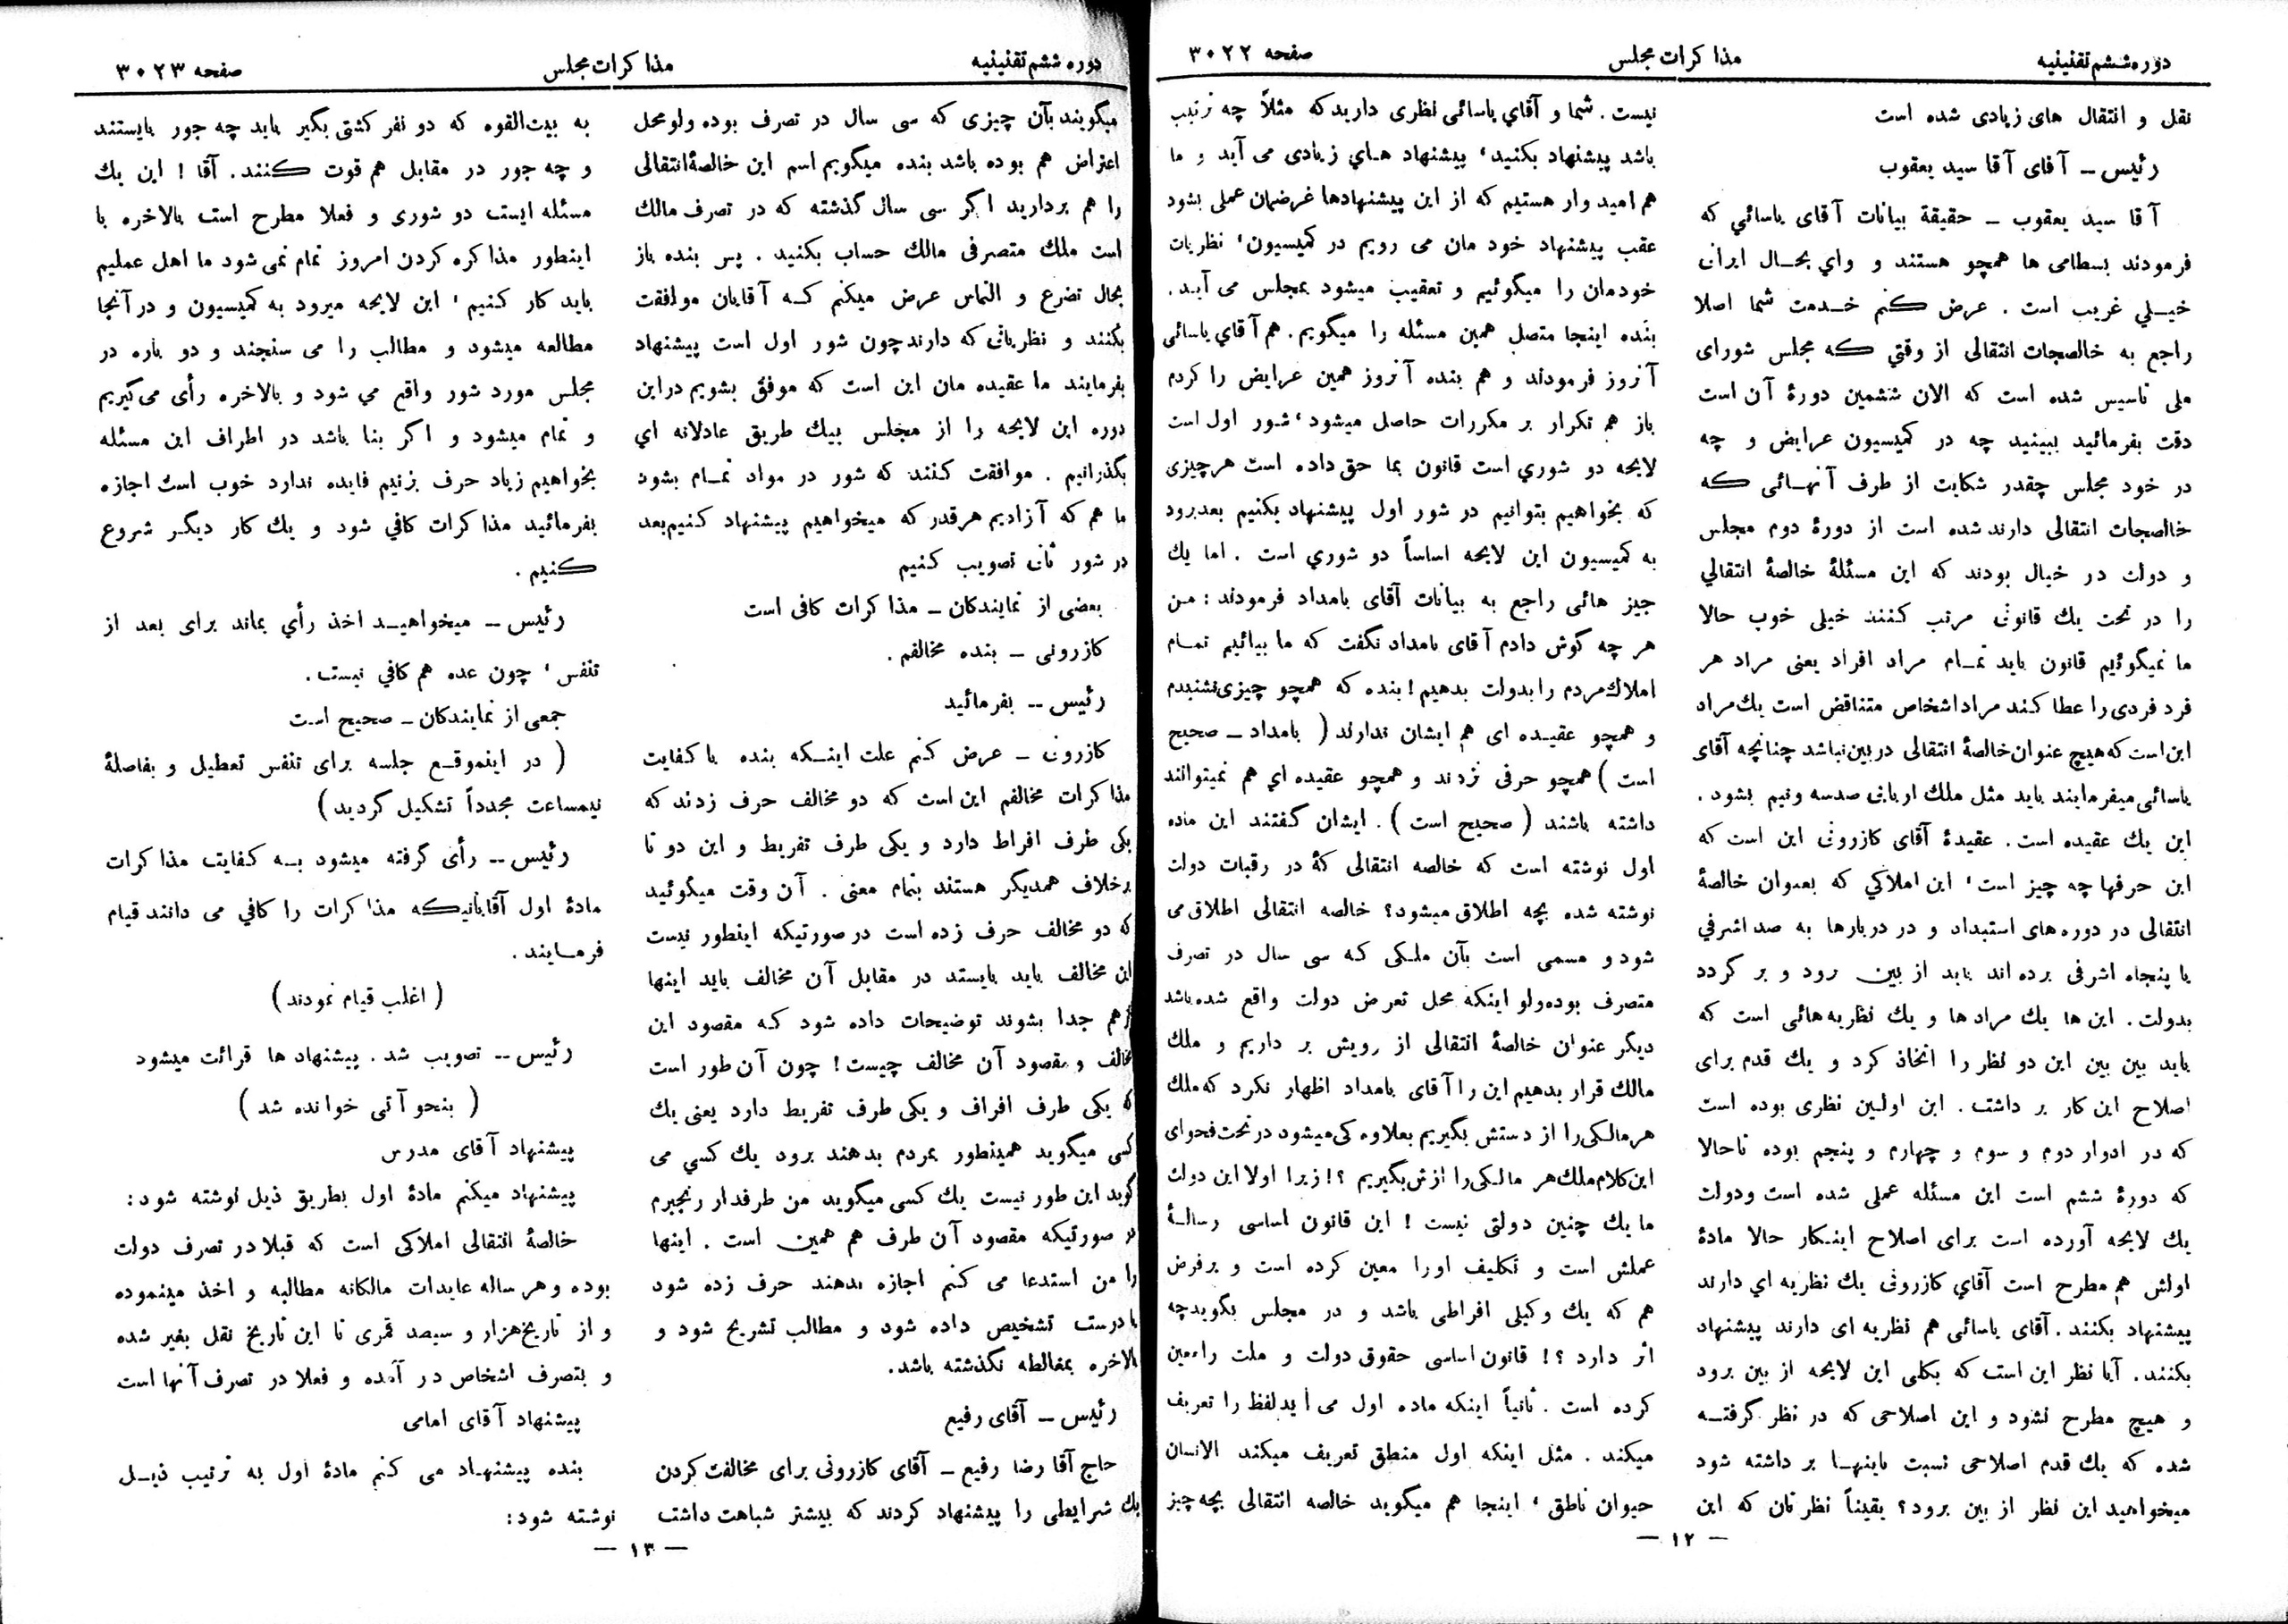 دوره ششم تقنینیه
مذاکرات مجلس
صفحه ۳۰۲۲
نقل و انتقال های زیادی شده است
رئیس ــ آقای آقا سید یعقوب
آقا سید یعقوب ــ حقیقة بیانات آقای یاسائي که
فرمودند بسطامی ها همچو هستند و واي بحـال ایران
خیـلي غریب است . عرض کنم خـدمت شما اصلا
راجع به خالصجات انتقالی از وقتي که مجلس شورای
ملی تاسیس شده است که الان ششمین دورهٔ آن است
دقت بفرمائید ببینید چه در کمیسیون عرایض و چه
در خود مجلس چقدر شکایت از طرف آنهـائی که
خالصجات انتقالی دارند شده است از دورهٔ دوم مجلس
و دولت در خیال بودند که این مسئلهٔ خالصهٔ انتقالي
را در تحت یك قانونی مرتب کنند خیلی خوب حالا
ما نمیگوئیم قانون باید تمـام مراد افراد یعنی مراد هر
فرد فردی را عطا کند مراد اشخاص متناقض است یك مراد
این است که هیچ عنوان خالصهٔ انتقالی در بین نباشد چنانچه آقای
یاسائی میفرمایند باید مثل ملك اربابی صدسه ونیم بشود .
این یك عقیده است . عقیدهٔ آقای کازرونی این است که
این حرفها چه چیز است ، این املاکي که بعنوان خالصهٔ
انتقالی در دوره های استبداد و در دربارها به صد اشرفي
یا پنجاه اشرفی برده اند باید از بین رود و بر گردد
بدولت . این ها یك مراد ها و یك نظریه هائی است که
باید بین بین این دو نظر را اتخاذ کرد و یك قدم برای
اصلاح این کار بر داشت . این اولین نظری بوده است
که در ادوار دوم و سوم و چهارم و پنجم بوده تا حالا
که دورهٔ ششم است این مسئله عملی شده است ودولت
یك لایحه آورده است برای اصلاح اینـکار حالا مادهٔ
اولش هم مطرح است آقاي کازرونی یك نظریه اي دارند
پیشنهاد بکنند . آقای یاسائی هم نظریه ای دارند پیشنهاد
بکنند . آیا نظر این است که بکلی این لایحه از بین برود
و هیچ مطرح نشود و این اصلاحی که در نظر گرفتـه
شده که یك قدم اصلاحی نسبت باینهـا بر داشته شود
میخواهید این نظر از بین برود ؟ یقیناً نظرتان که این
نیست . شما و آقاي یاسائی نظری دارید که مثلاً چه ترتیب
باشد پیشنهاد بکنید ، پیشنهاد هـاي زیادی می آید و ما
هم امید وار هستیم که از این پیشنهادها غرضمان عملی بشود
عقب پیشنهاد خود مان می رویم در کمیسیون ، نظریات
خودمان را میگوئیم و تعقیب میشود بمجلس می آیـد .
بنده اینجا متصل همین مسئله را میگویم . هم آقاي یاسائی
آنروز فرمودند و هم بنده آنروز همین عرایض را کردم
باز هم تکرار بر مکررات حاصل میشود ، شور اول است
لایحه دو شوري است قانون بما حق داده است هر چیزی
که بخواهیم بتوانیم در شور اول پیشنهاد بکنیم بعد برود
به کمیسیون این لایحه اساساً دو شوري است . اما یك
چیز هائی راجع به بیانات آقای بامداد فرمودند : مـن
هر چه گوش دادم آقای بامداد نگفت که ما بیائیم تمـام
املاك مردم را بدولت بدهیم ! بنده که همچو چیزی نشنیدم
و همچو عقیـده ای هم ایشان ندارند ( بامداد ــ صحیح
است ) همچو حرفی نزدند و همچو عقیده اي هم نمیتوانند
داشته باشند ( صحیح است ) . ایشان گفتند این ماده
اول نوشته است که خالصه انتقالی کهٔ در رقبات دولت
نوشته شده بچه اطلاق میشود ؟ خالصه انتقالی اطلاق می
شود و مسمی است بآن ملکی که سی سال در تصرف
متصرف بوده ولو اینکه محل تعرض دولت واقع شده باشد
دیگر عنوان خالصهٔ انتقالی از رویش بر داریم و ملك
مالك قرار بدهیم این را آقای بامداد اظهار نکرد که ملك
هر مالکی را از دستش بگیریم بعلاوه کی میشود در تحت فحوای
این کلام ملك هر مالکی را ازش بگیریم ؟! زیرا اولا این دولت
ما یك چنین دولتی نیست ! این قانون اساسی رسالـهٔ
عملش است و تکلیف اورا معین کرده است و بر فرض
هم که یك وکیلی افراطی باشد و در مجلس بگوید چه
اثر دارد ؟! قانون اساسی حقوق دولت و ملت را معین
کرده است . ثانیاً اینکه ماده اول می آید لفظ را تعریف
میکند . مثل اینکه اول منطق تعریف میکند الانسان
حیوان ناطق ، اینجا هم میگوید خالصه انتقالی بچه چیز
ــ ۱۲ ــ
دوره ششم تقنینیه
مذاکرات مجلس
صفحه ۳۰۲۳
میگویند بآن چیزی که سی سال در تصرف بوده ولو محل
اعتراض هم بوده باشد بنده میگویم اسم این خالصهٔ انتقالی
را هم بردارید اگر سی سال گذشته که در تصرف مالك
است ملك متصرفی مالك حساب بکنید . پس بنده باز
بحال تضرع و التماس عرض میکنم کـه آقایان موافقت
بکنند و نظریاتی که دارند چون شور اول است پیشنهاد
بفرمایند ما عقیده مان این است که موفق بشویم در این
دوره این لایحه را از مجلس بیك طریق عادلانه اي
بگذرانیم . موافقت کنند که شور در مواد تمـام بشود
ما هم که آزادیم هر قدر که میخواهیم پیشنهاد کنیم بعد
در شور ثانی تصویب کنیم
بعضی از نمایندکان ــ مذاکرات کافی است
کازرونی ــ بنده مخالفم .
رئیس ــ بفرمائید
کازرونی ــ عرض کنم علت اینـکه بنده با کفایت
مذاکرات مخالفم این است که دو مخالف حرف زدند که
یکی طرف افراط دارد و یکی طرف تفریط و این دو تا
برخلاف همدیگر هستند بتمام معنی . آن وقت میگوئید
که دو مخالف حرف زده است در صورتیکه اینطور نیست
این مخالف باید بایستد در مقابل آن مخالف باید اینها
از هم جدا بشوند توضیحات داده شود کـه مقصود این
مخالف و مقصود آن مخالف چیست ! چون آن طور است
که یکی طرف افراف و یکی طرف تفریط دارد یعنی یك
کسی میگوید همینطور بمردم بدهند برود یك کسي می
گوید این طور نیست یك کسی میگوید من طرفدار رنجبرم
در صورتیکه مقصود آن طرف هم همین است . اینها
را من استدعا می کنم اجازه بدهند حرف زده شود
تا درست تشخیص داده شود و مطالب تشریح شود و
بالاخره بمغالطه نگذشته باشد .
رئیس ــ آقای رفیع
حاج آقا رضا رفیع ــ آقای کازرونی برای مخالفت کردن
یك شرایطی را پیشنهاد کردند که بیشتر شباهت داشت
به بیت القوه که دو نفر کشتی بگیر باید چه جور بایستند
و چه جور در مقابل هم قوت کنند . آقا ! این یك
مسئله ایست دو شوری و فعلا مطرح است بالاخره با
اینطور مذاکره کردن امروز تمام نمی شود ما اهل عملیم
باید کار کنیم ، این لایحه میرود به کمیسیون و در آنجا
مطالعه میشود و مطالب را می سنجند و دو باره در
مجلس مورد شور واقع مي شود و بالاخره رأی می گیریم
و تمام میشود و اگر بنا باشد در اطراف این مسئله
بخواهیم زیاد حرف بزنیم فایده ندارد خوب است اجازه
بفرمائید مذاکرات کافي شود و یك کار دیگـر شروع
کنیم .
رئیس ــ میخواهیـد اخذ رأي بماند برای بعد از
تنفس ، چون عده هم کافي نیست .
جمعی از نمایندکان ــ صحیح است
( در اینموقـع جلسه برای تنفس تعطیل و بفاصلهٔ
نیمساعت مجدداً تشکیل گردید )
رئیس ــ رأی گرفته میشود بـه کفایت مذاکرات
مادهٔ اول آقایانیکه مذاکرات را کافي می دانند قیام
فرمـایند .
( اغلب قیام نمودند )
رئیس ــ تصویب شد . پیشنهاد ها قرائت میشود
( بنحو آتی خوانده شد )
پیشنهاد آقای مدرس
پیشنهاد میکنم مادهٔ اول بطریق ذیل نوشته شود :
خالصهٔ انتقالی املاکی است که قبلا در تصرف دولت
بوده و هر ساله عایدات مالکانه مطالبه و اخذ مینموده
و از تاریخ هزار و سیصد قمری تا این تاریخ نقل بغیر شده
و بتصرف اشخاص در آمده و فعلا در تصرف آنها است
پیشنهاد آقای امامی
بنده پیشنهـاد می کنم مادهٔ اول به ترتیب ذیـل
نوشته شود :
ــ ۱۳ ــ